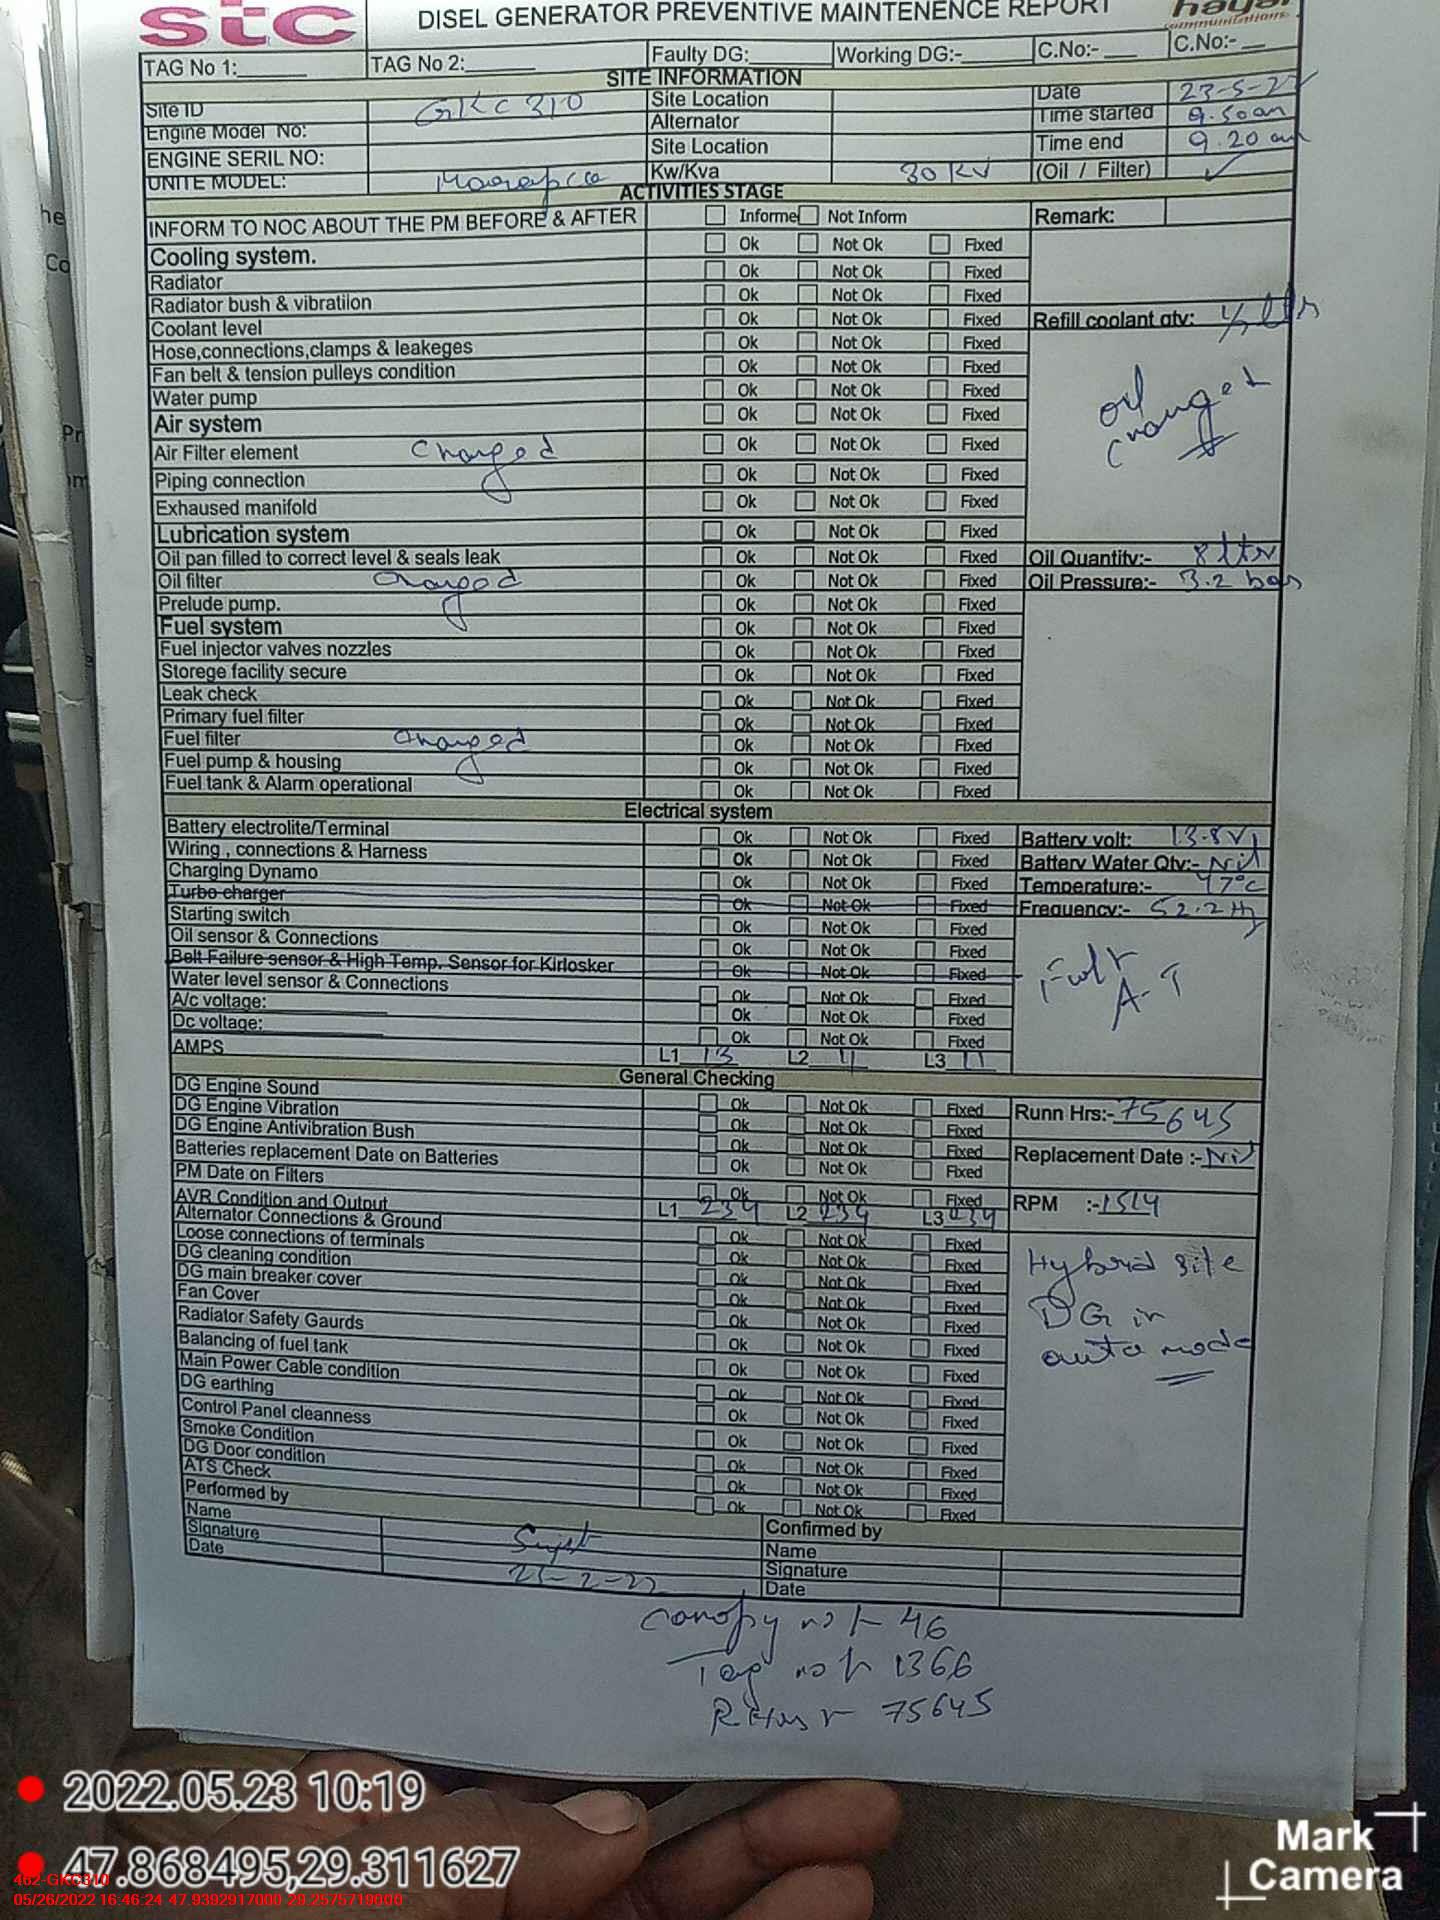 stc
DISEL GENERATOR PREVENTIVE MAINTENENCE REPORT
communications
TAG No 1:______ TAG No 2:______ Faulty DG:_____ Working DG:-______ C.No:- ___ C.No:- __
SITE INFORMATION
Site ID GKC 310 Site Location Date 23-5-22
Engine Model No: Alternator Time started 9.50am
ENGINE SERIL NO: Site Location Time end 9.20 am
UNITE MODEL: Kw/Kva 30 KV (Oil / Filter) ✓
ACTIVITIES STAGE
INFORM TO NOC ABOUT THE PM BEFORE & AFTER Informe Not Inform Remark:
Cooling system. Ok Not Ok Fixed
Radiator Ok Not Ok Fixed
Radiator bush & vibratiion Ok Not Ok Fixed
Coolant level Ok Not Ok Fixed Refill coolant qty:
Hose,connections,clamps & leakeges Ok Not Ok Fixed
Fan belt & tension pulleys condition Ok Not Ok Fixed
Water pump Ok Not Ok Fixed
Air system Ok Not Ok Fixed
oil
changed
Air Filter element changed Ok Not Ok Fixed
Piping connection Ok Not Ok Fixed
Exhaused manifold Ok Not Ok Fixed
Lubrication system Ok Not Ok Fixed
Oil pan filled to correct level & seals leak Ok Not Ok Fixed Oil Quantity:- 8 ltr
Oil filter changed Ok Not Ok Fixed Oil Pressure:- 3.2 bar
Prelude pump. Ok Not Ok Fixed
Fuel system Ok Not Ok Fixed
Fuel injector valves nozzles Ok Not Ok Fixed
Storege facility secure Ok Not Ok Fixed
Leak check Ok Not Ok Fixed
Primary fuel filter Ok Not Ok Fixed
Fuel filter changed Ok Not Ok Fixed
Fuel pump & housing Ok Not Ok Fixed
Fuel tank & Alarm operational Ok Not Ok Fixed
Electrical system
Battery electrolite/Terminal Ok Not Ok Fixed Battery volt: 13.8V
Wiring , connections & Harness Ok Not Ok Fixed Battery Water Qty:- Nil
Charging Dynamo Ok Not Ok Fixed Temperature:- 47°c
Turbo charger Ok Not Ok Fixed Frequency:- 52.2 Hz
Starting switch Ok Not Ok Fixed
Oil sensor & Connections Ok Not Ok Fixed
Belt Failure sensor & High Temp. Sensor for Kirlosker Ok Not Ok Fixed
Water level sensor & Connections Ok Not Ok Fixed
A/c voltage: Ok Not Ok Fixed
Dc voltage: Ok Not Ok Fixed
AMPS L1 13 L2 11 L3 11
General Checking
DG Engine Sound Ok Not Ok Fixed Runn Hrs:- 75645
DG Engine Vibration Ok Not Ok Fixed
DG Engine Antivibration Bush Ok Not Ok Fixed
Batteries replacement Date on Batteries Ok Not Ok Fixed Replacement Date :- Nil
PM Date on Filters Ok Not Ok Fixed
AVR Condition and Output L1 234 L2 239 L3 234 RPM :- 1514
Alternator Connections & Ground Ok Not Ok Fixed
Loose connections of terminals Ok Not Ok Fixed
DG cleaning condition Ok Not Ok Fixed
DG main breaker cover Ok Not Ok Fixed
Fan Cover Ok Not Ok Fixed
Hybrid site
DG in
auto mode
Radiator Safety Gaurds Ok Not Ok Fixed
Balancing of fuel tank Ok Not Ok Fixed
Main Power Cable condition Ok Not Ok Fixed
DG earthing Ok Not Ok Fixed
Control Panel cleanness Ok Not Ok Fixed
Smoke Condition Ok Not Ok Fixed
DG Door condition Ok Not Ok Fixed
ATS Check Ok Not Ok Fixed
Performed by Confirmed by
Name Name
Signature Signature
Date Date
canopy no :- 46
Tag no :- 1366
75645
2022.05.23 10:19
47.868495,29.311627
462-GKC310
05/26/2022 16:46:24 47.9392917000 29.2575719000
Mark
Camera